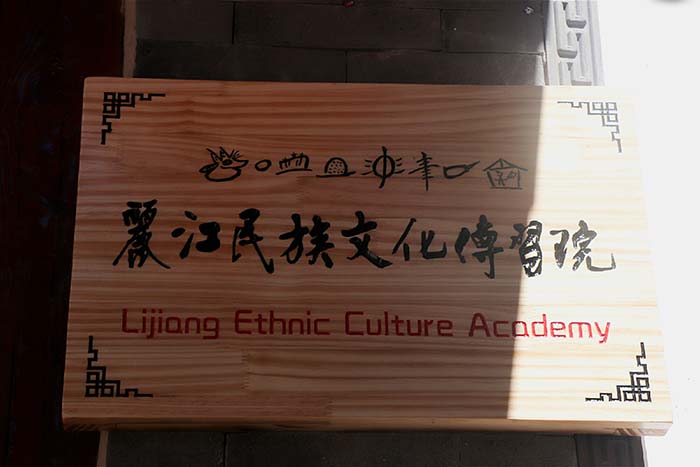 麗江民族文化傳習院
Lijiang Ethnic Culture Academy